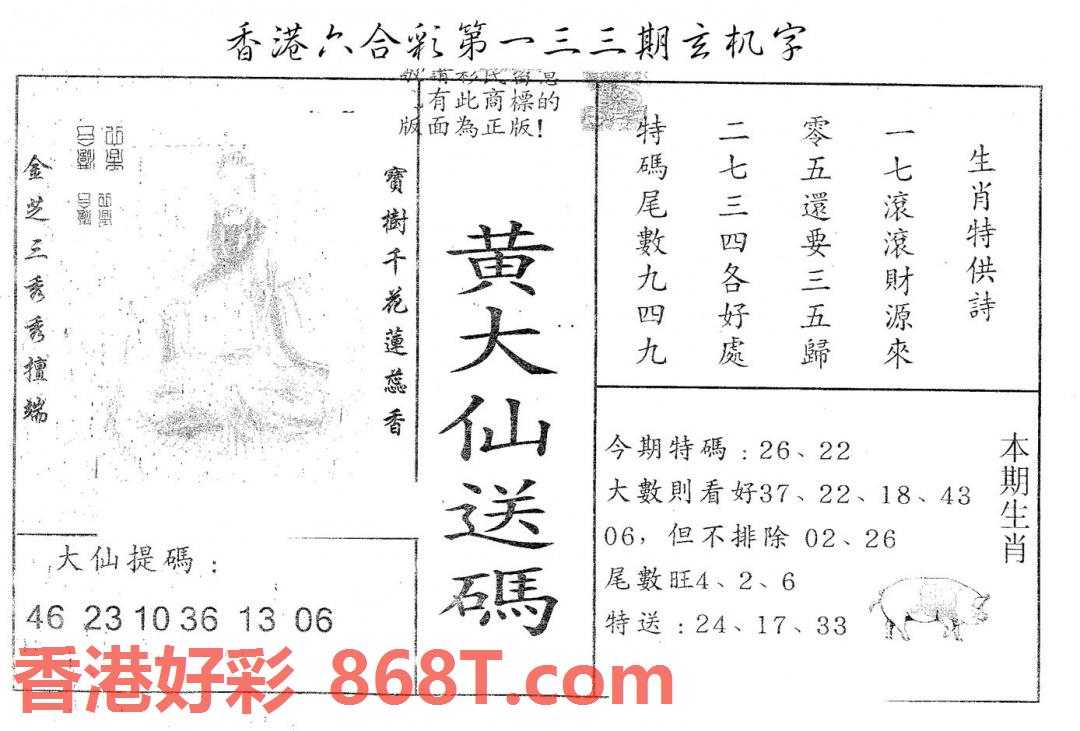 香港六合彩第一三三期玄机字
有此商標的
版面為正版!
金芝三秀秀擅端
寶樹千花蓮蕊香
黄大仙送碼
生肖特供詩
一七滾滾財源來
零五還要三五歸
二七三四各好處
特碼尾數九四九
本期生肖
今期特碼：26、22
大數則看好37、22、18、43
06，但不排除 02、26
尾數旺4、2、6
特送：24、17、33
大仙提碼：
46 23 10 36 13 06
香港好彩 868T.com